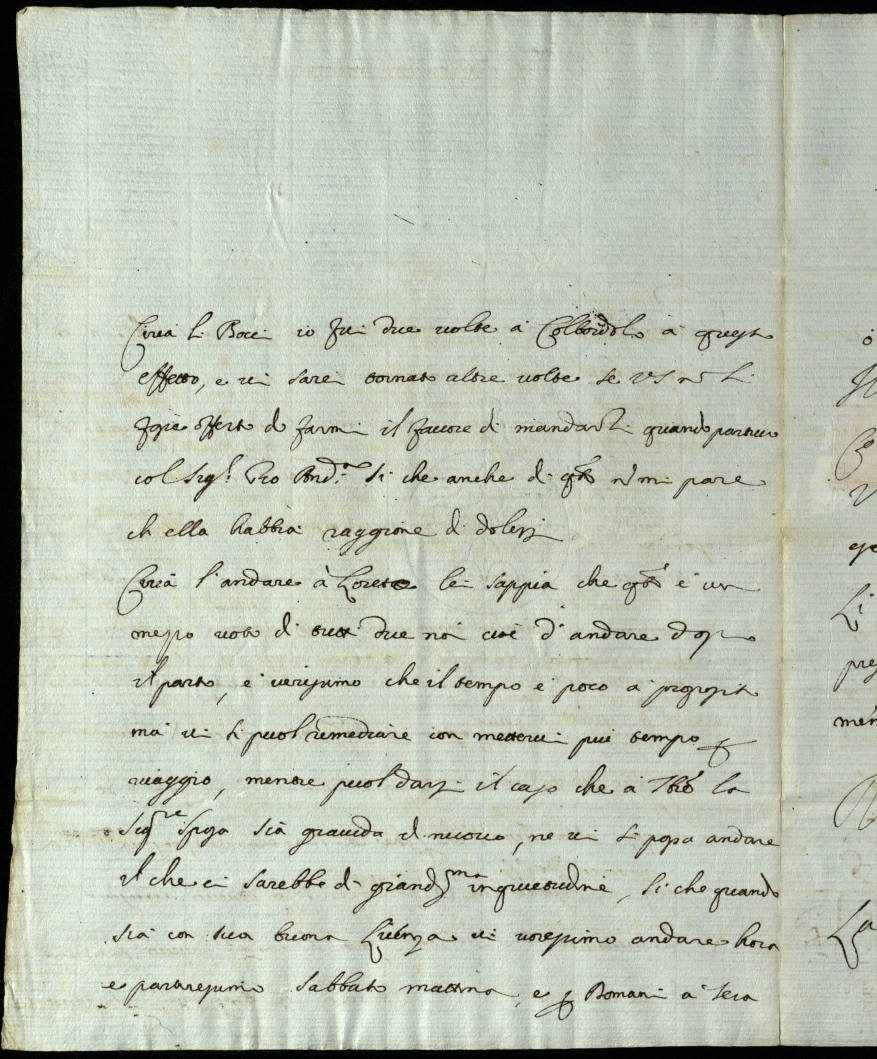 Circa li Bocci io fui due uolte à Colbordolo à questo
effetto, e ui sarei tornato altre uolte se VS nõ si
fosse offerto di farmi il fauore di mandarli quando
col Sig.r Pio And.a si che anche di q.to nõ mi pare
ch ella habbia raggione di dolersi
Circa l'andare à Loreto lei sappia che q.to è un
mezzo uoto di tutti due noi cioè d'andare dopo
il parto, è uerissimo che il tempo è poco à proposito
mà ui si puol remediare con metterui più tempo p
uiaggio, mentre puol darsi il caso che à la
Sig.re Sposa sia grauida di nuouo, ne ui si possa andare
il che ci sarebbe di grandiss.ma inquietudine, si che quando
sia con sua buona Licenza ui uoressimo andare hora
e partiressimo Sabbato mattina, e p Domani à sera
ò
Li
pre
men
La